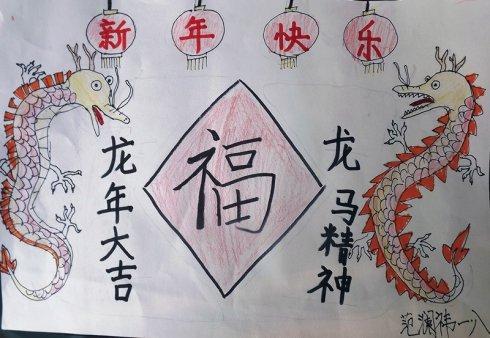 新年快乐
龙年大吉
福
龙马精神
范澜祎一、八